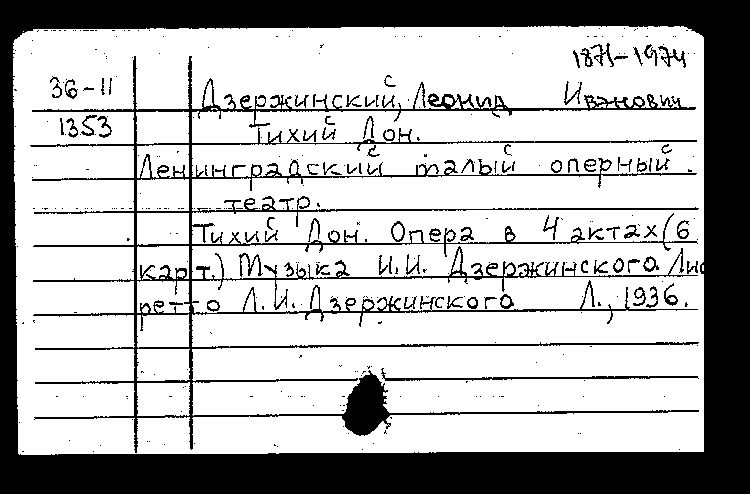 1871-1974
36-11 Дзержинский, Леонид Иванович
1353 Тихий Дон.
Ленинградский малый оперный
театр.
Тихий Дон. Опера в 4 актах (6
карт.) Музыка И.И. Дзержинского. Либ
ретто Л.И. Дзержинского Л., 1936.